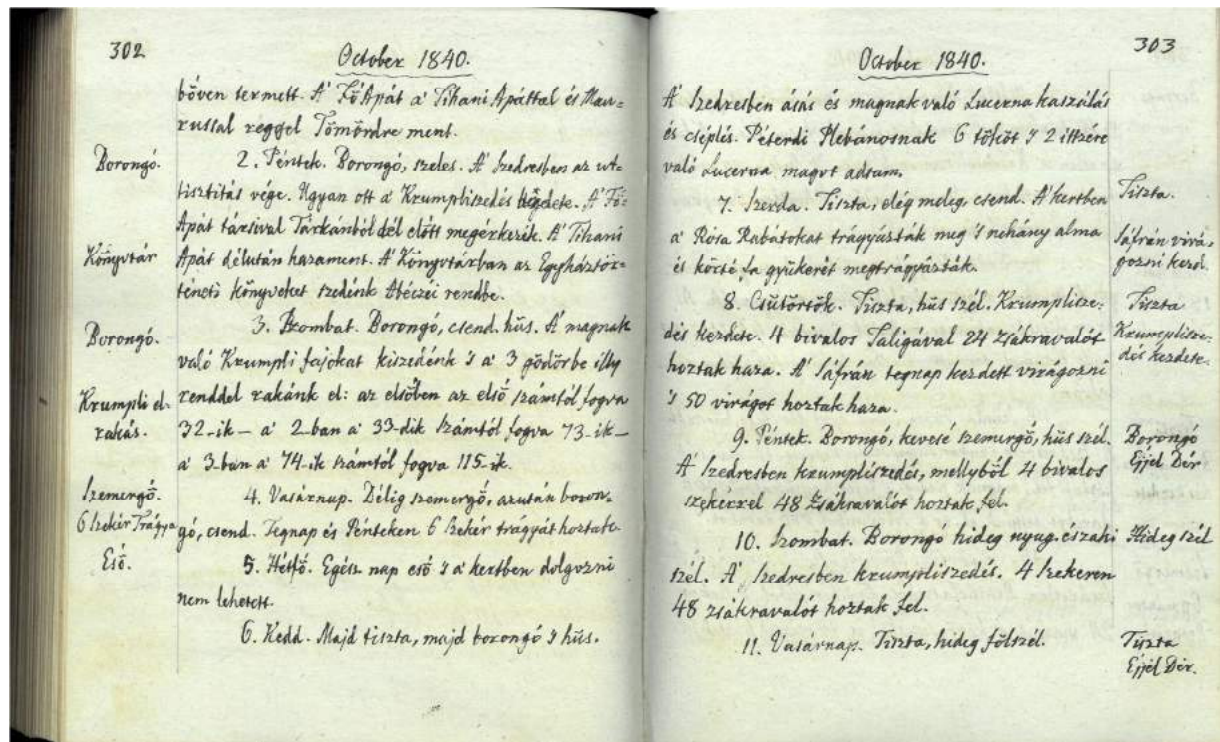 302
October 1840.
bőven termett. A' FőApát a' Tihani Apáttal és Mau=
russal reggel Tömördre ment.
Borongó.
2. Péntek. Borongó, szeles. A' Szedresben az ut-
tisztitás vége. Ugyan ott a' Krumpliszedés kezdete. A' Fő-
Apát társival Tárkánból dél előtt megérkezik. A' Tihani
Könyvtár
Apát délután hazament. A' Könyvtárban az Egyháztör-
téneti könyveket szedénk Abéczéi rendbe.
Borongó.
3. Szombat. Borongó, csend. hüs. A' magnak
való Krumpli fajokat kiszedénk 's a' 3 gödörbe illy
Krumpli el-
rakás.
renddel rakánk el: az elsőben az első számtól fogva
32-ik — a' 2-ban a' 33-dik számtól fogva 73-ik —
a' 3-ban a' 74-ik számtól fogva 115-ik.
Szemergő.
6 Szekér Trágya
4. Vasárnap. Délig szemergő, azután boron-
gó, csend. Tegnap és Pénteken 6 Szekér trágyát hoztak.
Eső.
5. Hétfő. Egész nap eső 's a' kertben dolgozni
nem lehetett.
6. Kedd. Majd tiszta, majd borongó 's hüs.
303
October 1840.
A' Szedresben ásás és magnak való Lucerna kaszálás
és cséplés. Péterdi Plebánosnak 6 tököt 's 2 ittzére
való Lucerna magot adtam.
7. Szerda. Tiszta, elég meleg, csend. A' kertben
Tiszta.
a' Rósa Rabátokat trágyázták meg 's nehány alma
és körte fa gyükerét megtrágyázták.
Sáfrán virá-
gozni kezd.
8. Csütörtök. Tiszta, hüs szél. Krumplisze-
Tiszta
dés kezdete. 4 bivalos Taligával 24 Zsákravalót
Krumplisze-
dés kezdete.
hoztak haza. A' Sáfrán tegnap kezdett virágozni
's 50 virágot hoztak haza.
9. Péntek. Borongó, kevesé szemergő, hüs szél.
Borongó
Éjjel Dér
A' Szedresben krumpliszedés, mellyből 4 bivalos
szekérrel 48 Zsákravalót hoztak fel.
10. Szombat. Borongó hideg nyug. északi
Hideg szél
szél. A' Szedresben krumpliszedés. 4 Szekeren
48 zsákravalót hoztak fel.
11. Vasárnap. Tiszta, hideg fölszél.
Tiszta
Éjjel Dér.